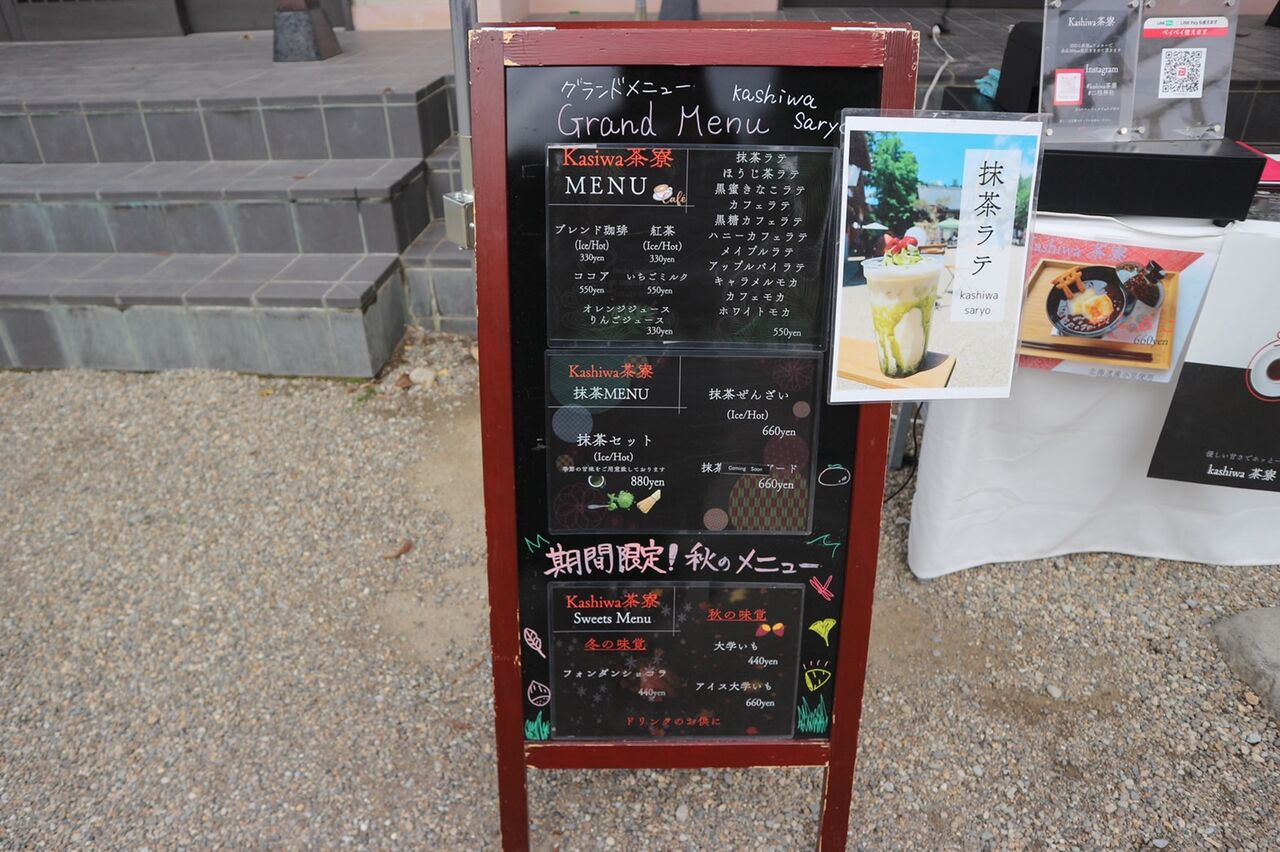 グランドメニュー
Grand Menu
kashiwa
saryo
Kasiwa茶寮
MENU
Café
ブレンド珈琲
(Ice/Hot)
330yen
紅茶
(Ice/Hot)
330yen
ココア
550yen
いちごミルク
550yen
オレンジジュース
りんごジュース
330yen
抹茶ラテ
ほうじ茶ラテ
黒蜜きなこラテ
カフェラテ
黒糖カフェラテ
ハニーカフェラテ
メイプルラテ
アップルパイラテ
キャラメルモカ
カフェモカ
ホワイトモカ
550yen
Kashiwa茶寮
抹茶MENU
抹茶セット
(Ice/Hot)
季節の甘味をご用意致しております
880yen
抹茶ぜんざい
(Ice/Hot)
660yen
抹茶
Coming Soon
ード
660yen
期間限定!秋のメニュー
Kashiwa茶寮
Sweets Menu
冬の味覚
フォンダンショコラ
440yen
秋の味覚
大学いも
440yen
アイス大学いも
660yen
ドリンクのお供に
抹茶ラテ
kashiwa
saryo
Kashiwa茶寮
Instagram
LINE Pay も使えます
ペイペイ使えます
kashiwa 茶寮
660yen
北海道産小豆使用
優しい甘さでホッと一
kashiwa 茶寮